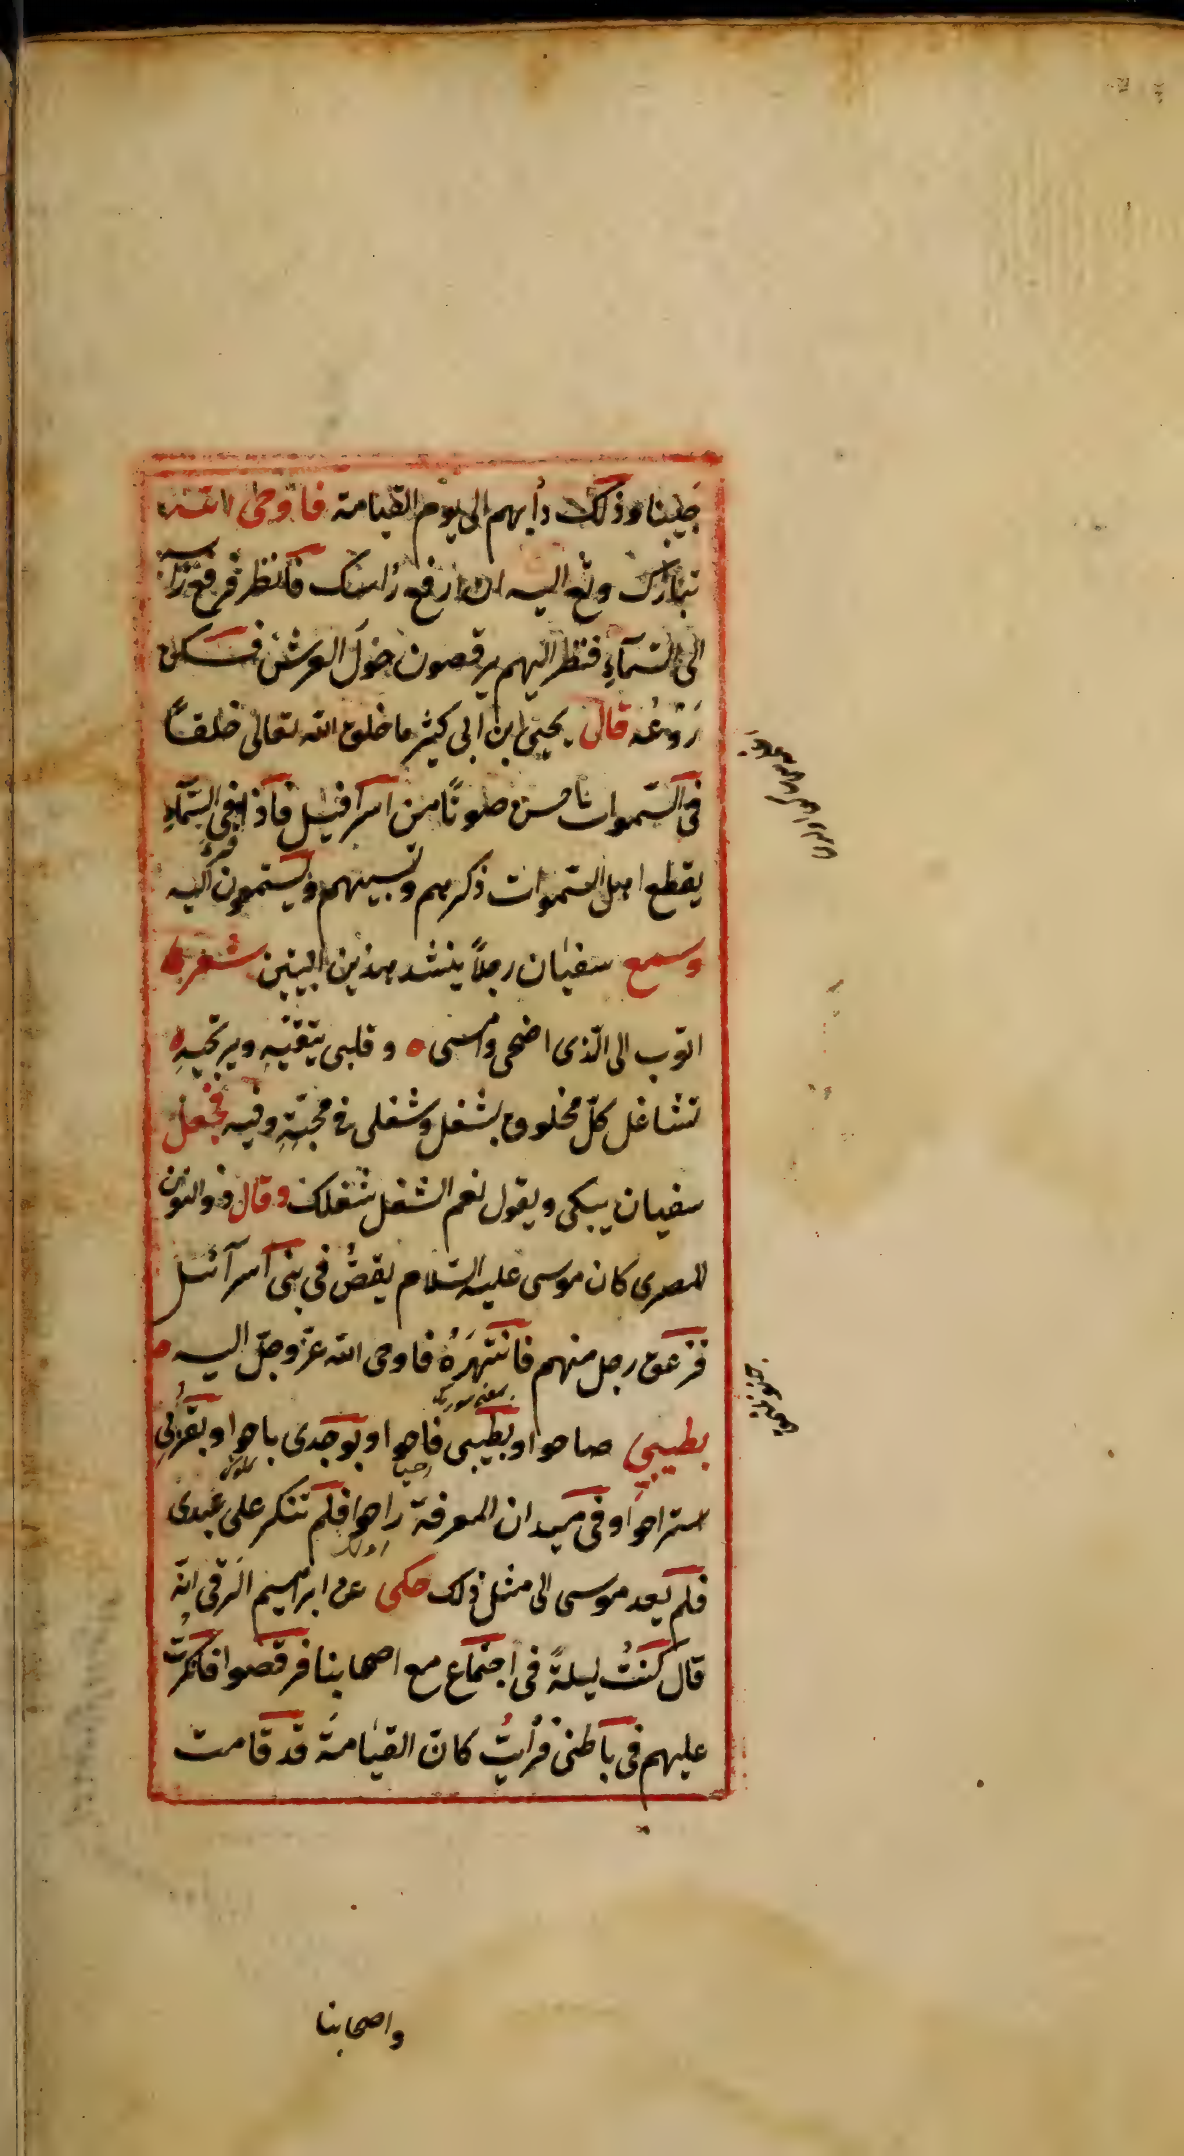 حبيبنا وذلك دأبهم الى يوم القيامة فاوحى الله
تبارك وتع اليه ان ارفع راسك فانظر فرفع رآسه
الى السّمآءِ فنظر اليهم يرقصون حول العرش فسكن
رَوْعُه قال يحيى ابن ابى كثير ما خلق الله تعالى خلقاً
فى السّموات احسن صوتًا من اسرافيل فاذا قرء فى السّمآءِ
يقطع اهل السّموات ذكرهم وتسبيحهم ويستمعون اليه
وسمع سفيان رجلاً ينشد بهذين البيتين شعر
اتوب الى الّذى اضحى وامسى ه وقلبى يتّقيْهِ ويرتجيهِ
تشاغل كلّ مخلوق بشغل وشغلى فى محبّتِهِ وفيه فجعل
سفيان يبكى ويقول نعم الشغل شغلك وقال ذو النون
المصرى كان موسى عليه السّلام يقصُّ فى بنى اسرآئيل
فزعق رجل منهم فانتهَرَهُ فاوحى الله عزّ وجلّ اليه
بطيبي صاحوا وبطيبى فاحوا وبوجدى باحوا وبقربى
استراحوا وفى ميدان المعرفة راحوا فلم تنكر على عبدى
فلم يعد موسى الى مثل ذلك حكى عن ابراهيم الرقى انّه
قال كنتُ ليلةً فى اجتماع مع اصحابنا فرقصوا فانكرتُ
عليهم فى باطنى فرأيتُ كان القيامة قد قامت
واصحابنا